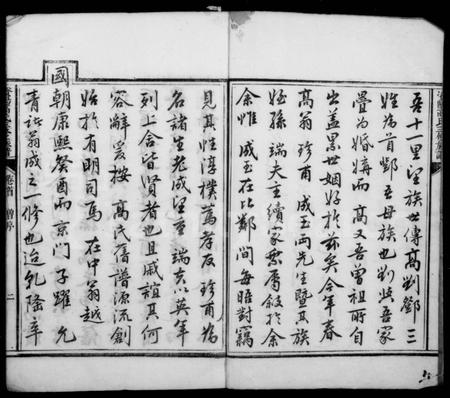 吾十一里望族世傳高劉鄧三
姓為首鄧吾母族也劉與吾家
疊為婚媾而高又吾曾祖所自
出蓋累世姻好於茲矣今年春
高翁珍甫成玉兩先生暨其族
姪孫端夫主續家乘屬敘於余
余惟成玉在比鄰間每晤對竊
見其性淳樸篤孝友珍甫為
名諸生老成望重端夫以英年
列上舍皆賢者也且戚誼其何
容辭爰按高氏舊譜源流創
始於有明司馬在中翁越
國
朝康熙癸酉而京門子躍允
青諸翁成之一修也迨乾隆辛
卷首
二